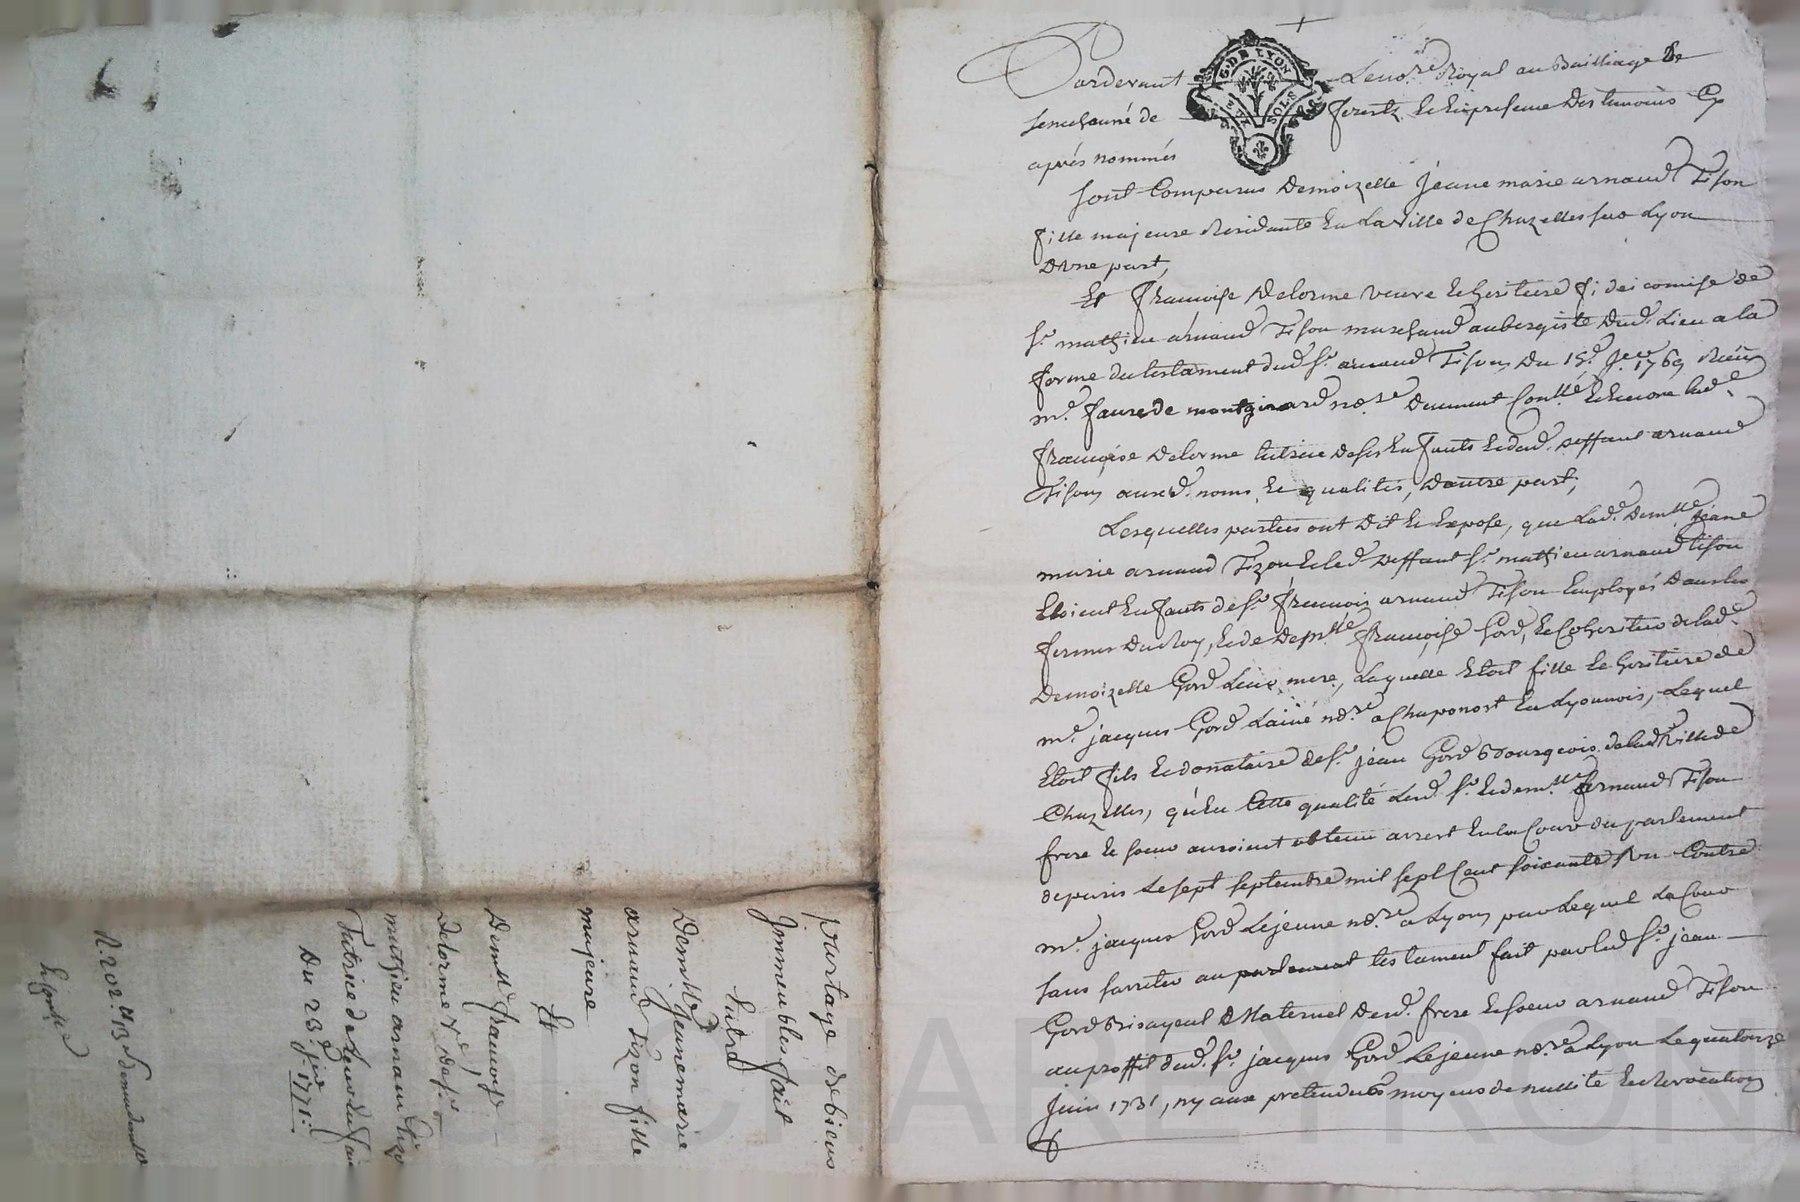 Pardevant Le no.re Royal au Bailliage &
senechauné de forestz Et En presence Des temoins Cy
après nommés
G. DE LYON
SOLS
sont Comparus Demoizelle jeane marie arnaud Tison
fille majeure Residante En La Ville de Chazelles sur Lyon
D'une part,
Et françoise Delorme veuve Et heritiere fideicomise de
S.r mathieu arnaud Tison marchand aubergiste dud. Lieu a la
forme du testament dud. S.r arnaud Tison Du 15.e 1769 Reçu
m.e faure de montgirard no.re Duement Con.llé Et Encore lad.e
françoise Delorme tutrice de ses Enfants Et dud. deffunt arnaud
Tison auxd. noms Et qualités, D'autre part,
Lesquelles parties ont Dit Et Exposé, que Lad.e Dem.lle jeane
marie arnaud Tizon Et le d. deffunt S.r mathieu arnaud tison
Etoient Enfants de S.r françois arnaud Tison Employés Dans les
fermes Du Roy, Et de Dem.lle françoise Gord, Et Coheritiers de lad.e
Demoizelle Gord Leur mere, Laquelle Etoit fille Et heritiere de
m.e jacques Gord L'ainé no.re a Chaponost En Lyonnois, Lequel
Etoit fils Et donataire de S.r jean Gord Bourgeois de lad. Ville de
Chazelles, qu'En Cette qualité Lesd. S.r Et dem.lle arnaud Tison
frere Et soeur auroient obtenu arrest En la Cour du parlement
de paris Le sept septembre mil sept Cent soixante Contre
m.e jacques Gord Lejeune no.re a Lyon par Lequel La Cour
sans s'arreter au testament fait par led. S.r jean
Gord Bisayeul Maternel Desd. frere Et soeur arnaud Tison
au proffit dud. S.r jacques Gord Lejeune no.re a Lyon Le quatorze
juin 1731, ny aux pretendues moyens de nullité Et Revocation
partage de biens
Immeubles fait
Entre
Dem.lle Jeanne marie
arnaud Tizon fille
majeure
Et
Dem.lle françoise
Delorme V.e de S.r
mathieu arnaud tizo
Tutrice de
Du 23.e 1771:
CHAREYRON